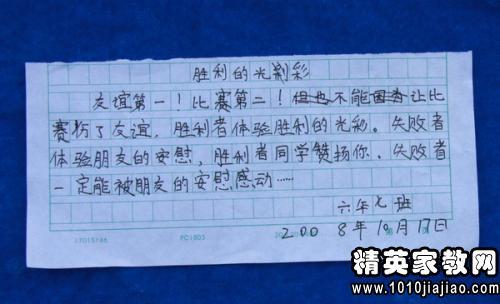 胜利的光彩
友谊第一！比赛第二！但也不能因为让比
赛伤了友谊，胜利者体验胜利的光彩。失败者
体验朋友的安慰，胜利者同学赞扬你、失败者
一定能被朋友的安慰感动……
六年七班
2008年10月17日
17015746
PC1803
精英家教网
www.1010jiajiao.com